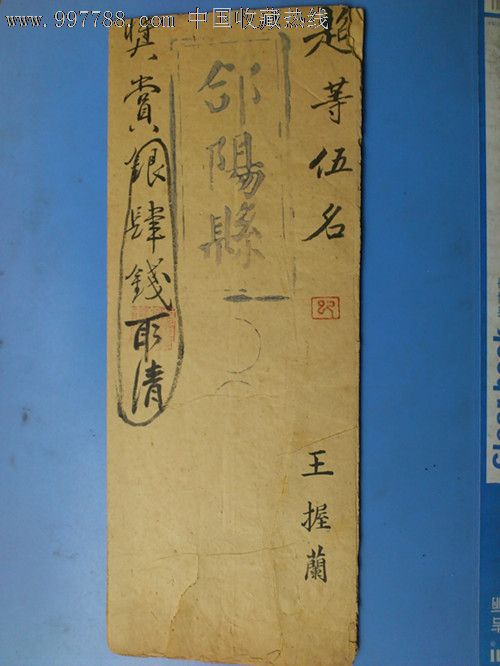 www.997788.com 中国收藏热线
超等伍名
王握蘭
郃陽縣
奬賞銀肆錢取清